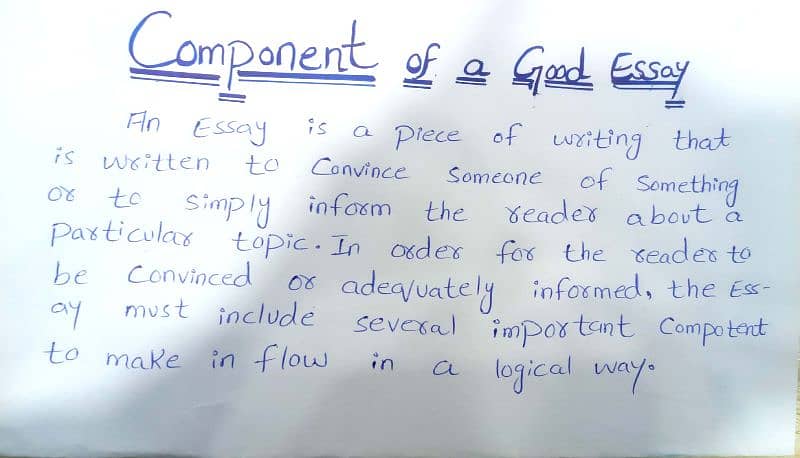 Component of a Good Essay
An Essay is a piece of writing that
is written to Convince Someone of Something
or to simply inform the reader about a
Particular topic. In order for the reader to
be Convinced or adequately informed, the Ess-
ay must include several important Compotent
to make in flow in a logical way.